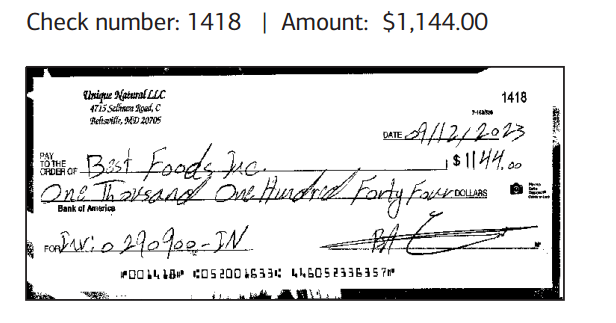 Check number: 1418 | Amount: $1,144.00
Unique Natural LLC
4715 Sellman Road, C
Beltsville, MD 20705
1418
DATE 09/12/2023
PAY
TO THE
ORDER OF Best Foods Inc. $1144.00
One Thousand One Hundred Forty Four DOLLARS
Bank of America
FOR Inv: 0290900-IN
⑈001418⑈ ⑆052001633⑆ 446052336357⑈